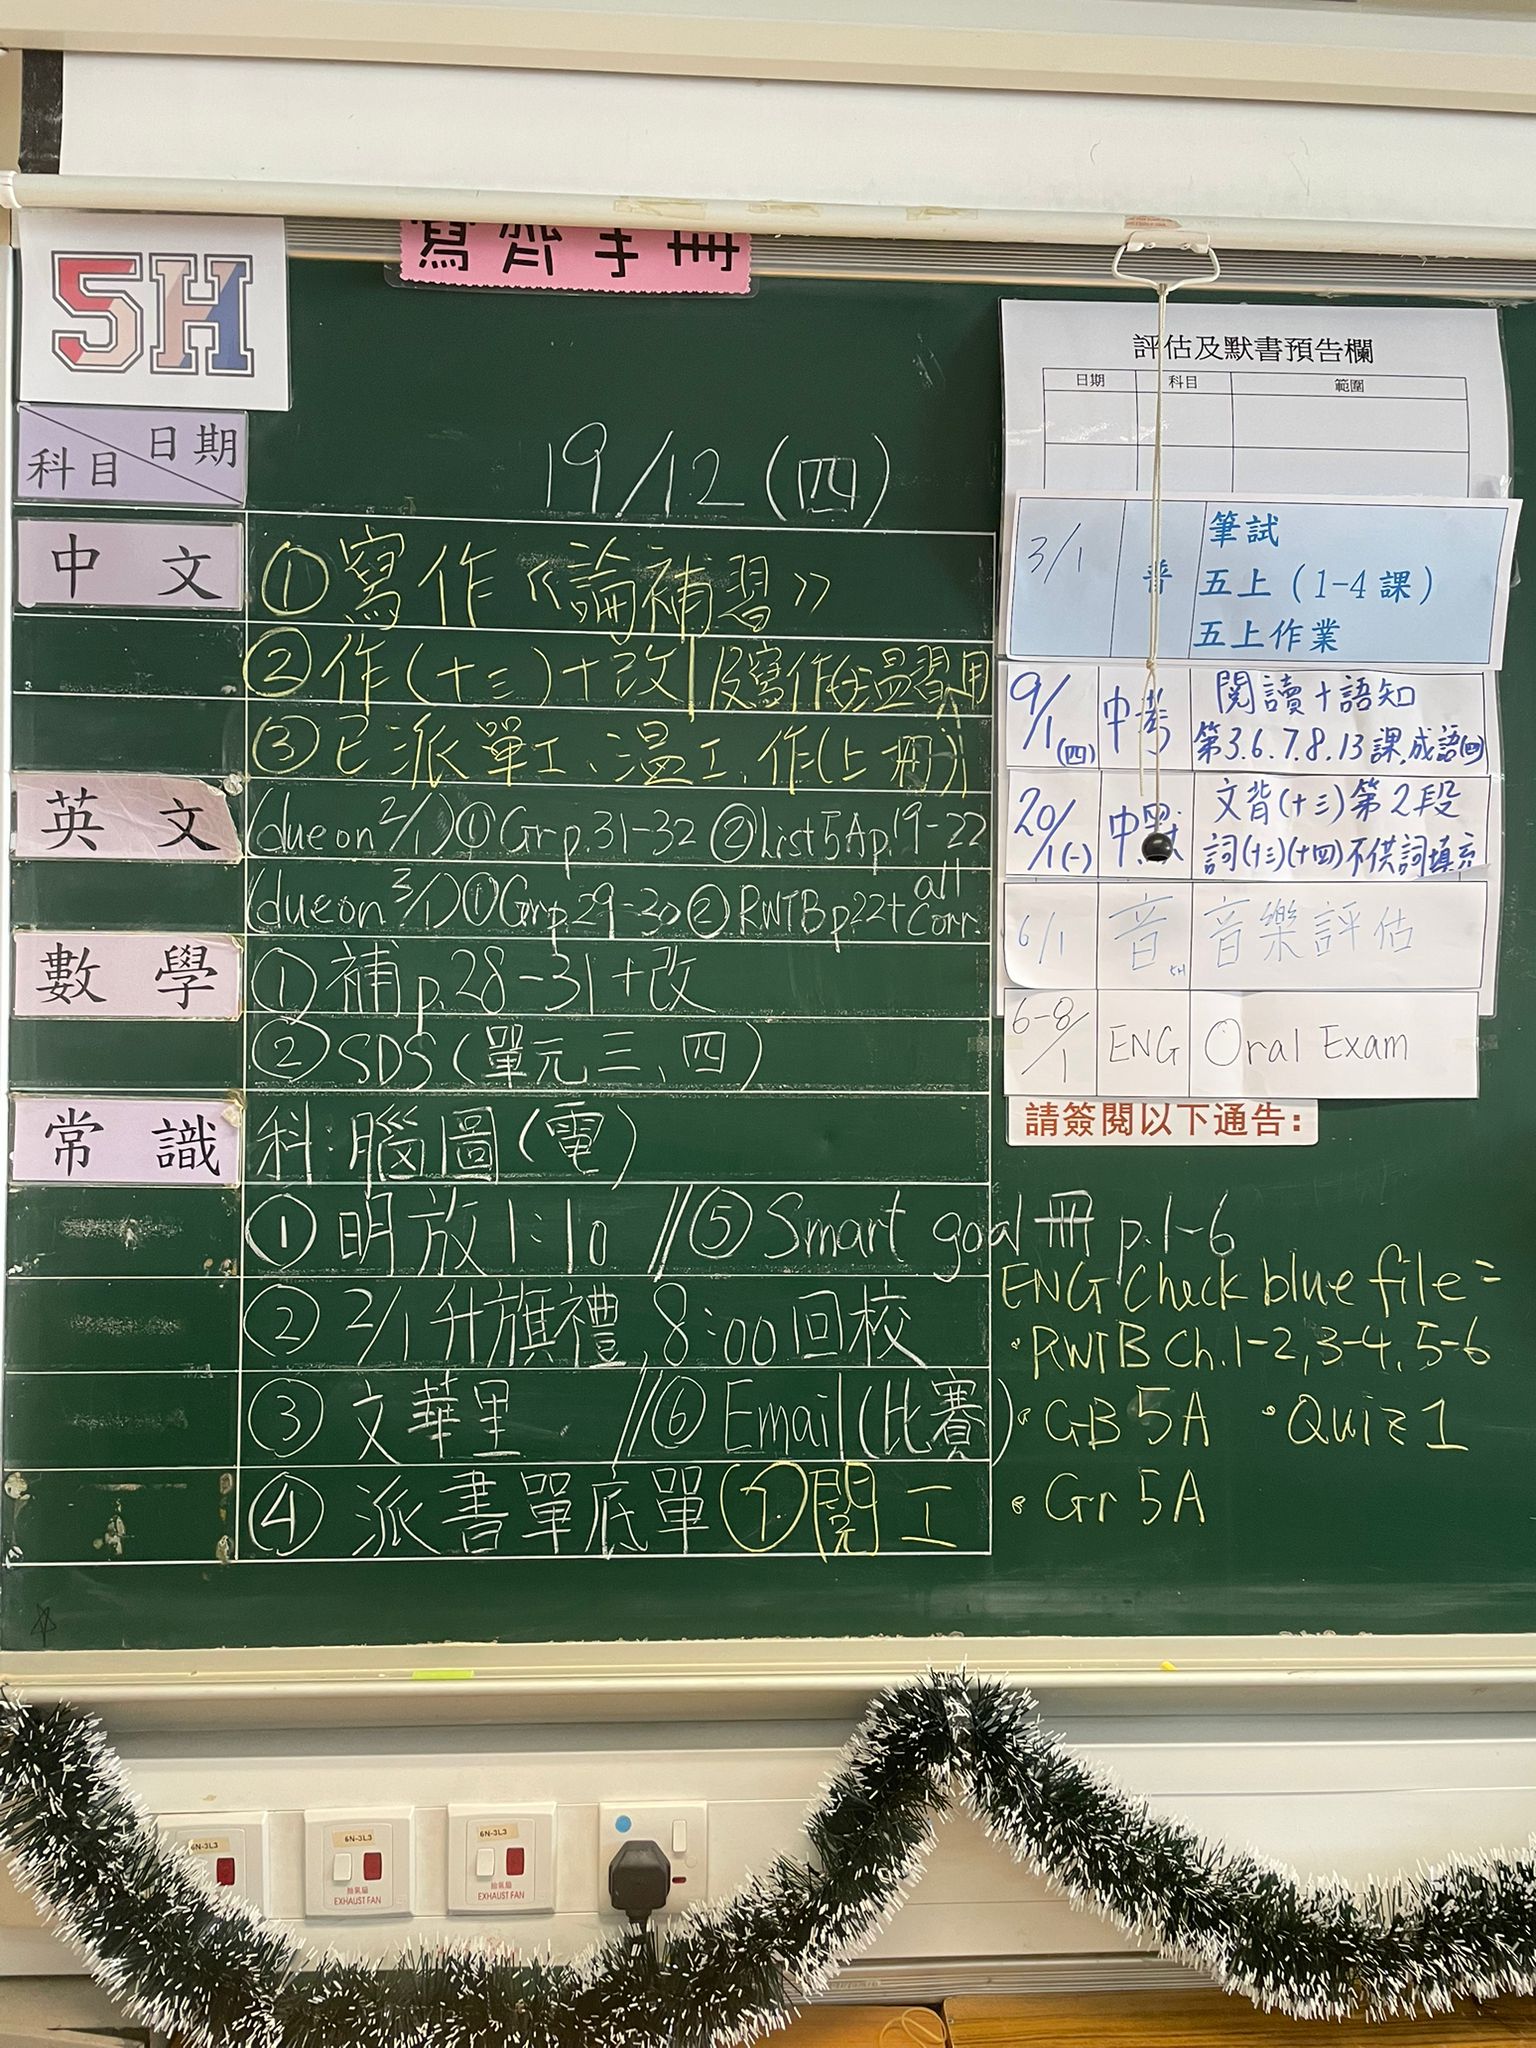 寫齊手冊
5H
科目 日期
19/12 (四)
中文
① 寫作《論補習》
② 作(十三)+改 反寫作(温習用)
③ 已派單工、温工、作(上冊)
英文
(due on 2/1) ① Gr p.31-32 ② List 5A p.19-22
(due on 3/1) ① Gr p.29-30 ② RWTB p.22+ all Corr.
數學
① 補 p.28-31+改
② SDS (單元三、四)
常識
科:腦圖(電)
① 明放1:10 // ⑤ Smart goal 冊 p.1-6
② 2/1升旗禮, 8:00回校
③ 文華里 // ⑥ Email (比賽)
④ 派書單底單 ⑦ 閱工
評估及默書預告欄
日期 科目 範圍
3/1 普 筆試
五上(1-4課)
五上作業
9/1 (四) 中考 閱讀+語知
第3.6.7.8.13課,成語(四)
20/1 (一) 中默 文背(十三)第2段
詞(十三)(十四)不供詞填充
6/1 音 5H 音樂評估
6-8/1 ENG Oral Exam
請簽閱以下通告:
ENG Check blue file =
• RWTB Ch.1-2, 3-4, 5-6
• GB 5A • Quiz 1
• Gr 5A
6N-3L3
6N-3L3
抽氣扇
EXHAUST FAN
6N-3L3
抽氣扇
EXHAUST FAN